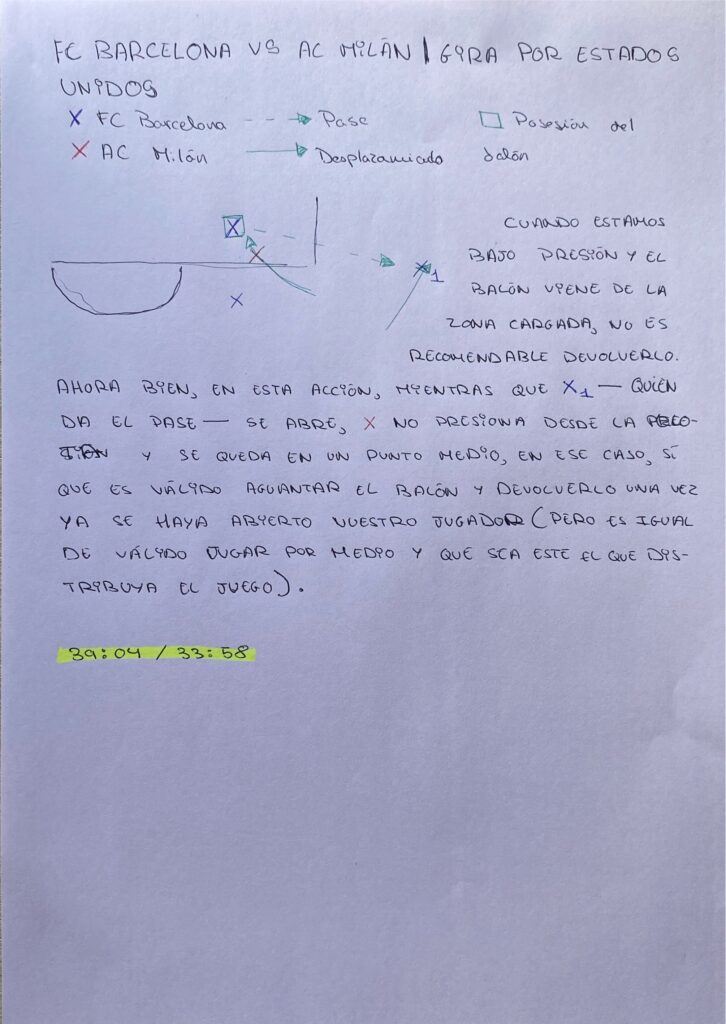 FC BARCELONA VS AC MILÁN | GIRA POR ESTADOS
UNIDOS
X FC Barcelona Pase Posesión del
X AC Milán Desplazamiento balón
CUANDO ESTAMOS
BAJO PRESIÓN Y EL
BALÓN VIENE DE LA
ZONA CARGADA, NO ES
RECOMENDABLE DEVOLVERLO.
X X
X1
X
AHORA BIEN, EN ESTA ACCIÓN, MIENTRAS QUE X1 — QUIEN
DA EL PASE — SE ABRE, X NO PRESIONA DESDE LA
Y SE QUEDA EN UN PUNTO MEDIO, EN ESE CASO, SÍ
QUE ES VÁLIDO AGUANTAR EL BALÓN Y DEVOLVERLO UNA VEZ
YA SE HAYA ABIERTO NUESTRO JUGADOR (PERO ES IGUAL
DE VÁLIDO JUGAR POR MEDIO Y QUE SEA ESTE EL QUE DIS-
TRIBUYA EL JUEGO).
39:04 / 33:58